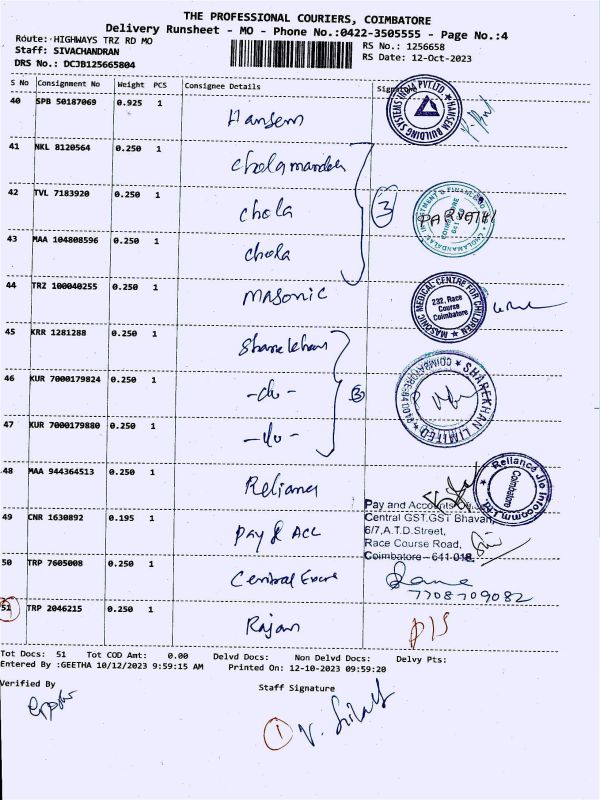 THE PROFESSIONAL COURIERS, COIMBATORE
Delivery Runsheet - MO - Phone No.:0422-3505555 - Page No.:4
Route: HIGHWAYS TRZ RD MO
RS No.: 1256658
Staff: SIVACHANDRAN
RS Date: 12-Oct-2023
DRS No.: DCJB125665804
S No Consignment No Weight PCS Consignee Details Signature
40 SPB 50187069 0.925 1 Hansem
HANSEN BUILDING SYSTEMS INDIA PVT LTD
41 NKL 8120564 0.250 1 Cholamandalam
42 TVL 7183920 0.250 1 chola
3
PARVATHI
CHOLAMANDALAM INVESTMENT & FINANCE
COIMBATORE
641
43 MAA 104808596 0.250 1 chola
44 TRZ 100040255 0.250 1 MASONIC
MASONIC MEDICAL CENTRE FOR CHILDREN
232, Race
Course
Coimbatore
45 KRR 1281288 0.250 1 Sharekhan
46 KUR 7000179824 0.250 1 -do-
3
SHAREKHAN LIMITED
COIMBATORE-641018
47 KUR 7000179880 0.250 1 -do-
48 MAA 944364513 0.250 1 Reliance
Reliance Jio Infocomm Ltd
Coimbatore
Pay and Accounts Of
49 CNR 1630892 0.195 1 Pay & Acc
Central GST, GST Bhavan,
6/7, A.T.D. Street,
Race Course Road,
Coimbatore - 641 018.
50 TRP 7605008 0.250 1 Central Excise
7708709082
51 TRP 2046215 0.250 1 Rajam
D/S
Tot Docs: 51 Tot COD Amt: 0.00 Delvd Docs: Non Delvd Docs: Delvy Pts:
Entered By :GEETHA 10/12/2023 9:59:15 AM Printed On: 12-10-2023 09:59:20
Verified By
Staff Signature
1